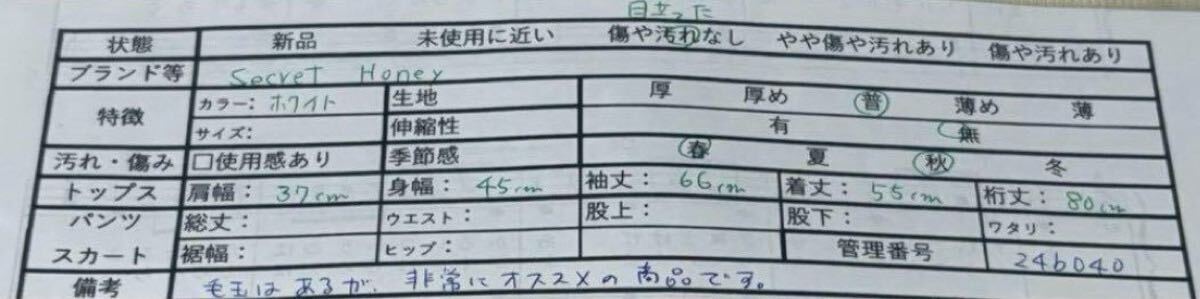 目立った
状態 新品 未使用に近い 傷や汚れなし やや傷や汚れあり 傷や汚れあり
ブランド等 Secret Honey
特徴 カラー：ホワイト 生地 厚 厚め 普 薄め 薄
サイズ： 伸縮性 有 無
汚れ・傷み □使用感あり 季節感 春 夏 秋 冬
トップス 肩幅：37cm 身幅：45cm 袖丈：66cm 着丈：55cm 裄丈：80cm
パンツ 総丈： ウエスト： 股上： 股下： ワタリ：
スカート 裾幅： ヒップ： 管理番号 246040
備考 毛玉はあるが、非常にオススメの商品です。